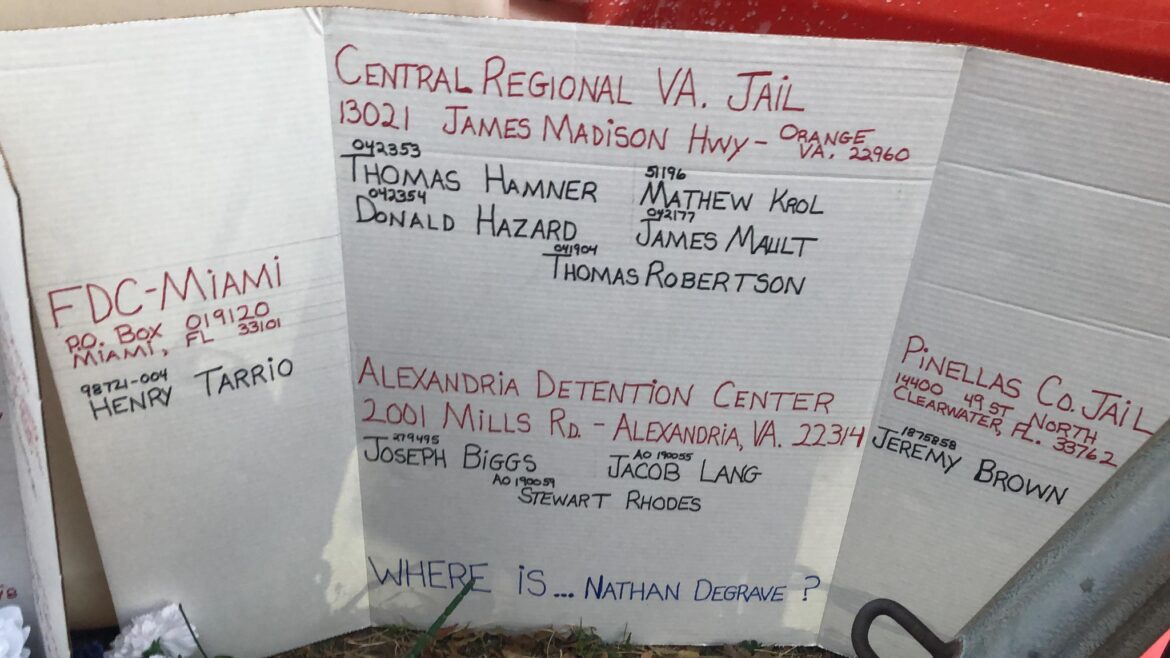 FDC-MiAMi
P.O. BOX 019120
MiAMi, FL 33101
98721-004
HENRY TARRiO
CENTRAL REGIONAL VA. JAiL
13021 JAMES MADISON HWY - ORANGE VA. 22960
042353
THOMAS HAMNER
042354
DONALD HAZARD
51196
MATHEW KROL
042177
JAMES MAULT
041904
THOMAS ROBERTSON
ALEXANDRiA DETENTiON CENTER
2001 MiLLS RD. - ALEXANDRiA, VA. 22314
279495
JOSEPH BiGGS
AO 190055
JACOB LANG
AO 190059
STEWART RHODES
WHERE iS... NATHAN DEGRAVE ?
PiNELLAS CO. JAiL
14400 49 ST NORTH
CLEARWATER, FL. 33762
1875858
JEREMY BROWN